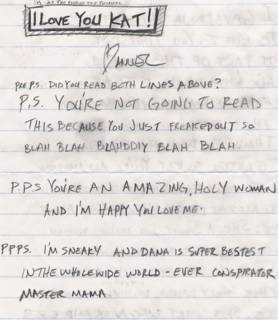 I LOVE YOU KAT!!
DANIEL
PRE P.S. DID YOU READ BOTH LINES ABOVE?
P.S. YOU'RE NOT GOING TO READ
THIS BECAUSE YOU JUST FREAKED OUT SO
BLAH BLAH BLAHDDIY BLAH BLAH
P.P.S YOU'RE AN AMAZING, HOLY WOMAN
AND I'M HAPPY YOU LOVE ME.
PPPS. I'M SNEAKY AND DANA IS SUPER BESTEST
IN THE WHOLE WIDE WORLD - EVER CONSPIRATOR
MASTER MAMA.